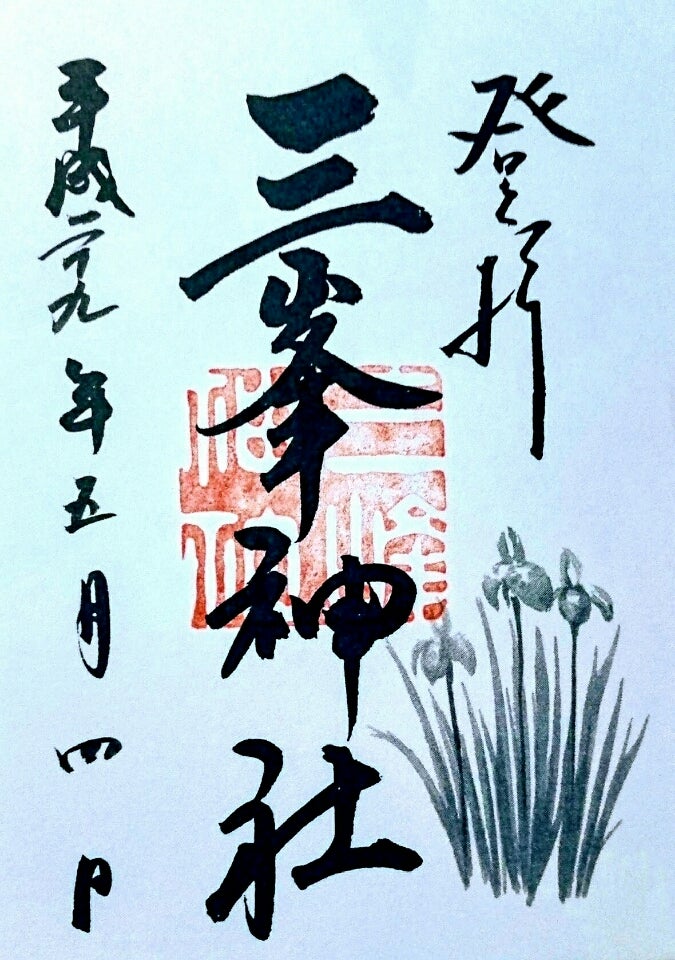 登拝
三峯神社
平成二十九年五月四日